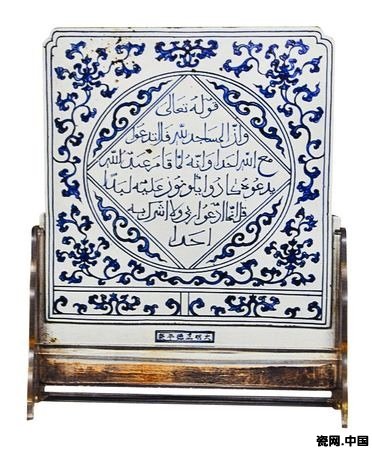 قوله تعالى
وان المساجد لله فلا تدعوا
مع الله احدا وانه لما قام عبد الله
يدعوه كادوا يكونون عليه لبدا
قل انما ادعوا ربي ولا اشرك به
احدا
大明正德年製
瓷网.中国